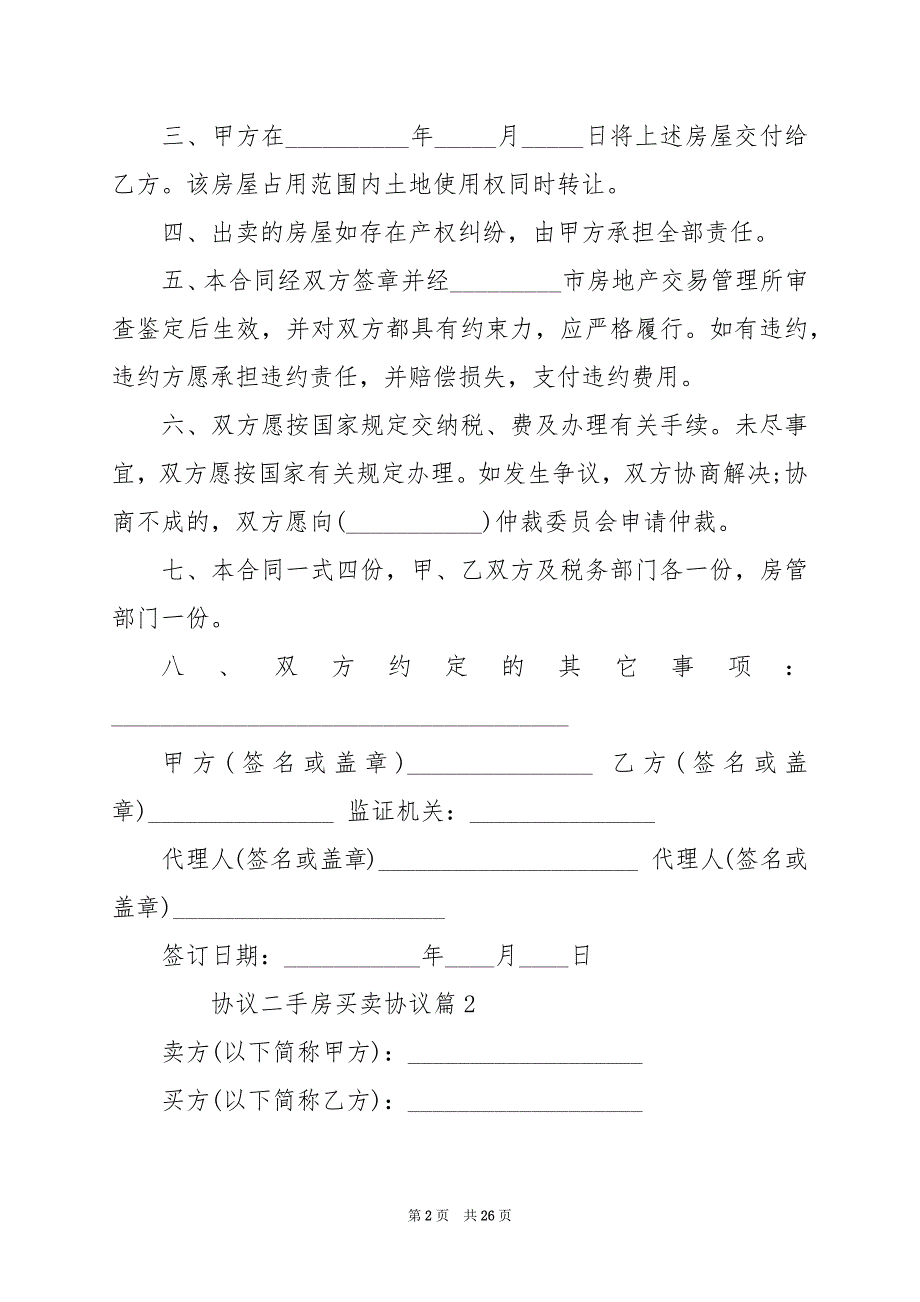 三、甲方在__________年_____月_____日将上述房屋交付给
乙方。该房屋占用范围内土地使用权同时转让。
四、出卖的房屋如存在产权纠纷，由甲方承担全部责任。
五、本合同经双方签章并经_________市房地产交易管理所审
查鉴定后生效，并对双方都具有约束力，应严格履行。如有违约，
违约方愿承担违约责任，并赔偿损失，支付违约费用。
六、双方愿按国家规定交纳税、费及办理有关手续。未尽事
宜，双方愿按国家有关规定办理。如发生争议，双方协商解决;协
商不成的，双方愿向(___________)仲裁委员会申请仲裁。
七、本合同一式四份，甲、乙双方及税务部门各一份，房管
部门一份。
八、双方约定的其它事项：
_____________________________________
甲方(签名或盖章)_______________ 乙方(签名或盖
章)_______________ 监证机关：_______________
代理人(签名或盖章)_____________________ 代理人(签名或
盖章)______________________
签订日期：___________年____月____日
协议二手房买卖协议篇2
卖方(以下简称甲方)：___________________
买方(以下简称乙方)：___________________
第 2 页 共 26 页